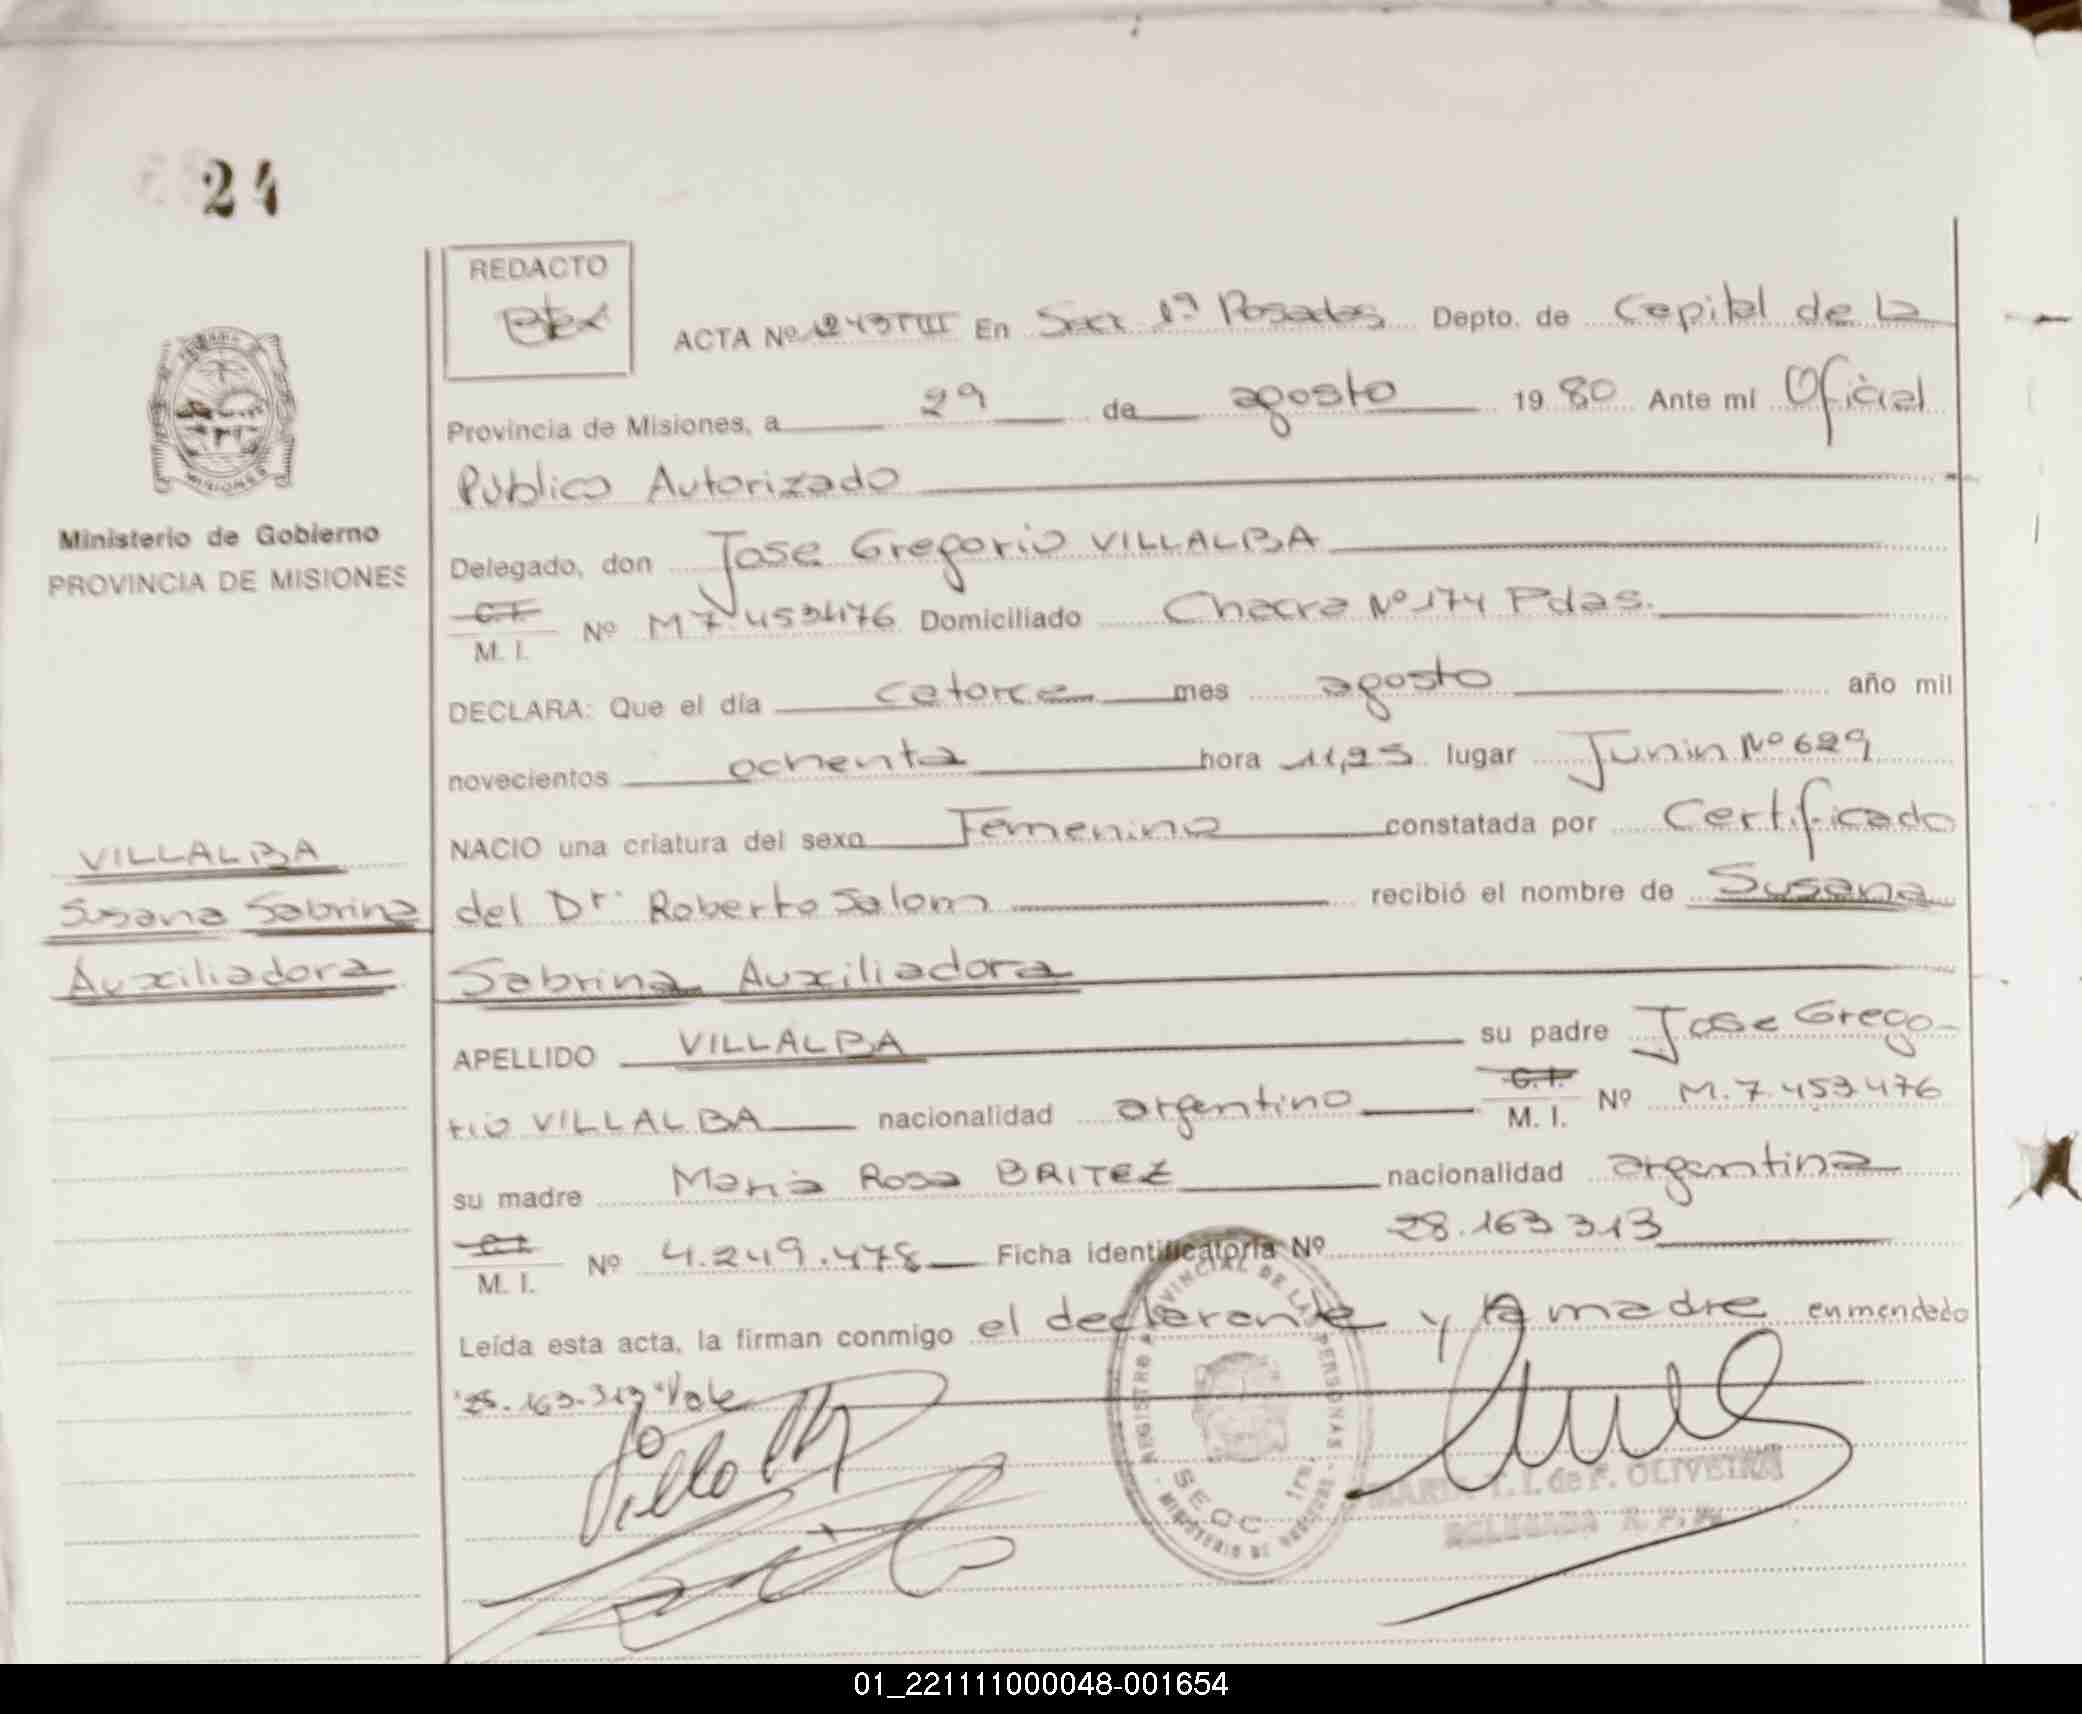 24
REDACTO
ACTA Nº 1243 TIII En Secc 1ª Posadas Depto. de Capital de la
Provincia de Misiones, a 29 de agosto 1980 Ante mi Oficial
Publico Autorizado
Ministerio de Gobierno
PROVINCIA DE MISIONES
Delegado, don Jose Gregorio VILLALBA
C.I.
M. I. Nº M 7.453476 Domiciliado Chacra Nº 174 Pdas.
DECLARA: Que el día catorce mes agosto año mil
novecientos ochenta hora 11,25 lugar Junin Nº 629
NACIO una criatura del sexo Femenino constatada por Certificado
del Dr. Roberto Salom recibió el nombre de Susana
Sabrina Auxiliadora
VILLALBA
Susana Sabrina
Auxiliadora
APELLIDO VILLALBA su padre Jose Grego-
rio VILLALBA nacionalidad argentino C.I. M. I. Nº M.7.453476
su madre Maria Rosa BRITEZ nacionalidad argentina
C.I.
M. I. Nº 4.249.478 Ficha identificatoria Nº 28.163.313
Leída esta acta, la firman conmigo el declarante y la madre enmendado
"28.163.313" Vale
REGISTRO PROVINCIAL DE LAS PERSONAS
SECC. 1ra.
MINISTERIO DE
de F. OLIVEIRA
DELEGADA R. P. P.
MISIONES
01_221111000048-001654